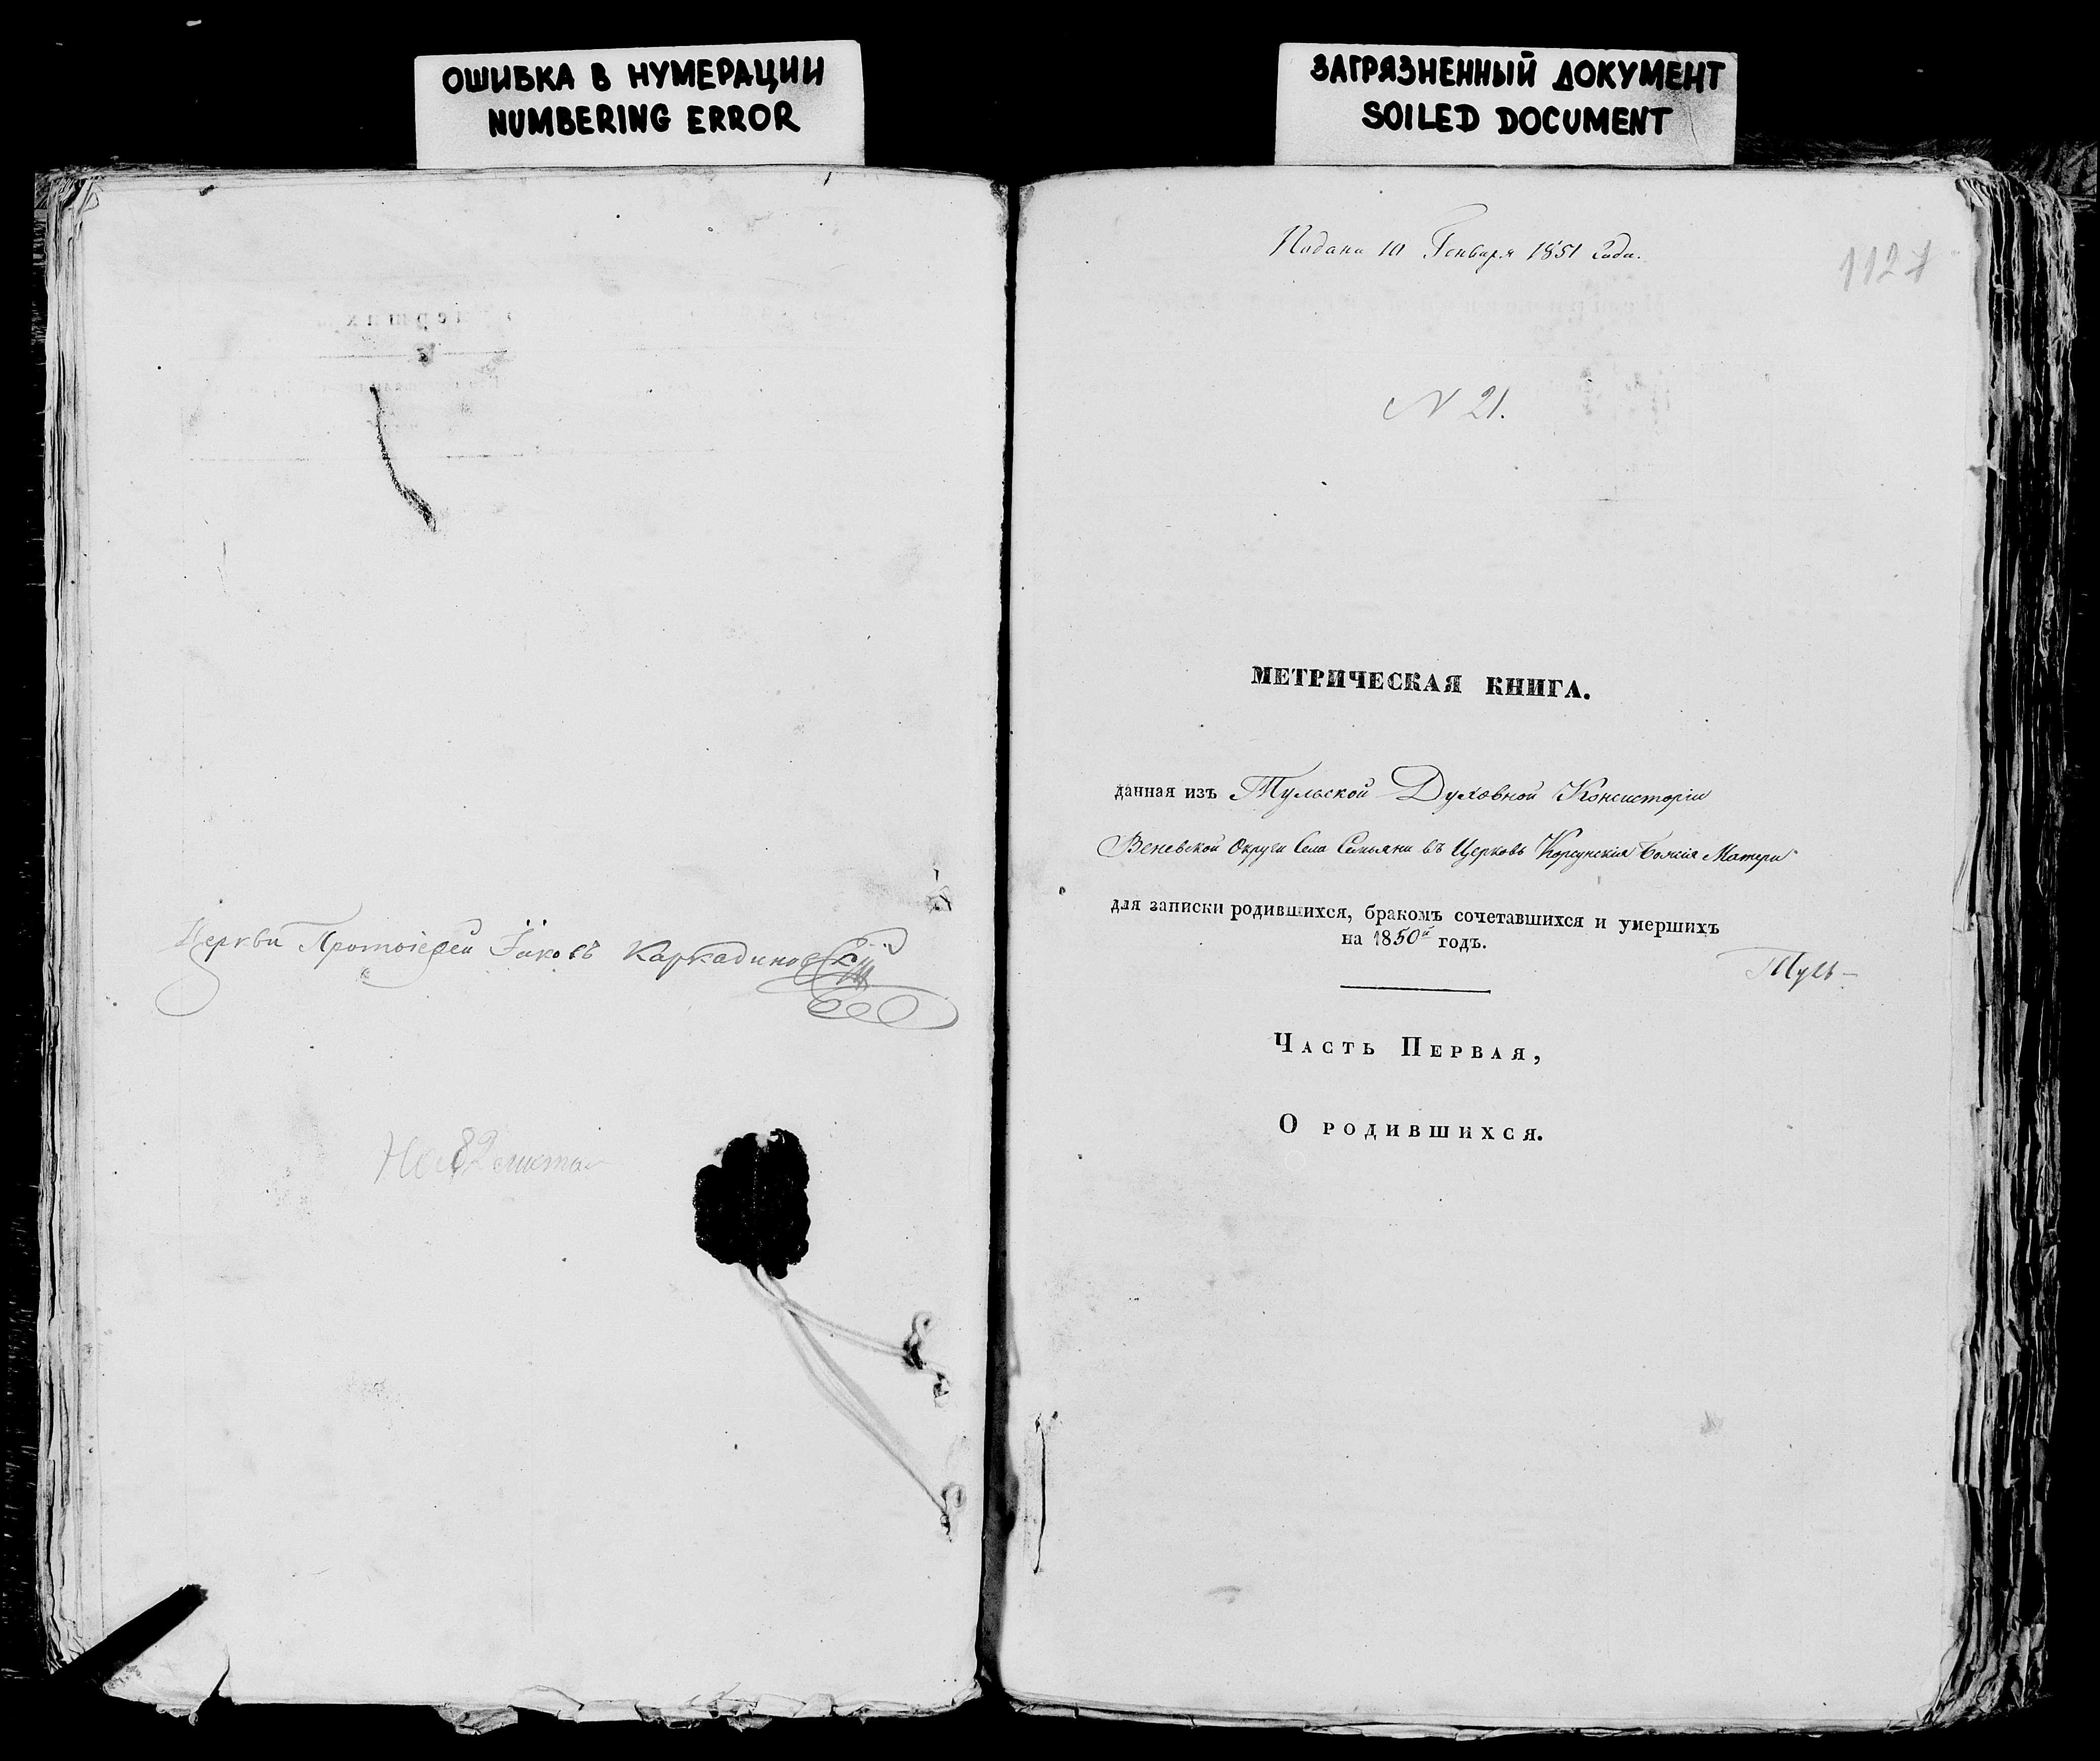 ОШИБКА В НУМЕРАЦИИ
NUMBERING ERROR
ЗАГРЯЗНЕННЫЙ ДОКУМЕНТ
SOILED DOCUMENT
Церкви Протоіерей Іаковъ Каркадиновскій
Подана 10 Генваря 1851 Года.
1127
N 21.
МЕТРИЧЕСКАЯ КНИГА.
данная изъ Тульской Духовной Консисторіи
Веневской Округи Села Семьяни въ Церковь Корсунскія Божія Матери
для записки родившихся, бракомъ сочетавшихся и умершихъ
на 1850й годъ.
Туль-
Часть Первая,
О родившихся.